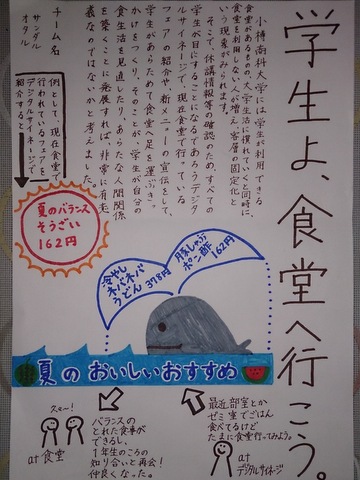 学生よ、食堂へ行こう。
小樽商科大学には学生が利用できる
食堂があるものの、大学生活に慣れていくと同時に、
食堂を利用しない人が増え、客層の固定化と
いう現象がみられます。
そこで、休講情報等の確認のため、すべての
学生が目にすることになるであろうデジタ
ルサイネージで、現在食堂で行っている
フェアの紹介や新メニューの宣伝をして、
学生があらためて食堂へ足を運ぶきっ
かけをつくり、そのことが、学生が自分の
食生活を見直したり、あらたな人間関係
を築くことに発展すれば、非常に有意
義なのではないかと考えました。
チーム名
サンタル
オタル
例として、現在食堂で
行われているフェアを
デジタルサイネージで
紹介すると
夏のバランス
そうざい
162円
冷やし
ネバネバ
うどん 378円
豚しゃぶ
ポン酢
162円
夏のおいしいおすすめ
最近、部室とか
ゼミ室でごはん
食べてるけど
たまに食堂行ってみよう。
at
デジタルサイネージ
バランスの
とれた食事が
できるし、
1年生のころの
知り合いと再会!
仲良くなった。
at 食堂